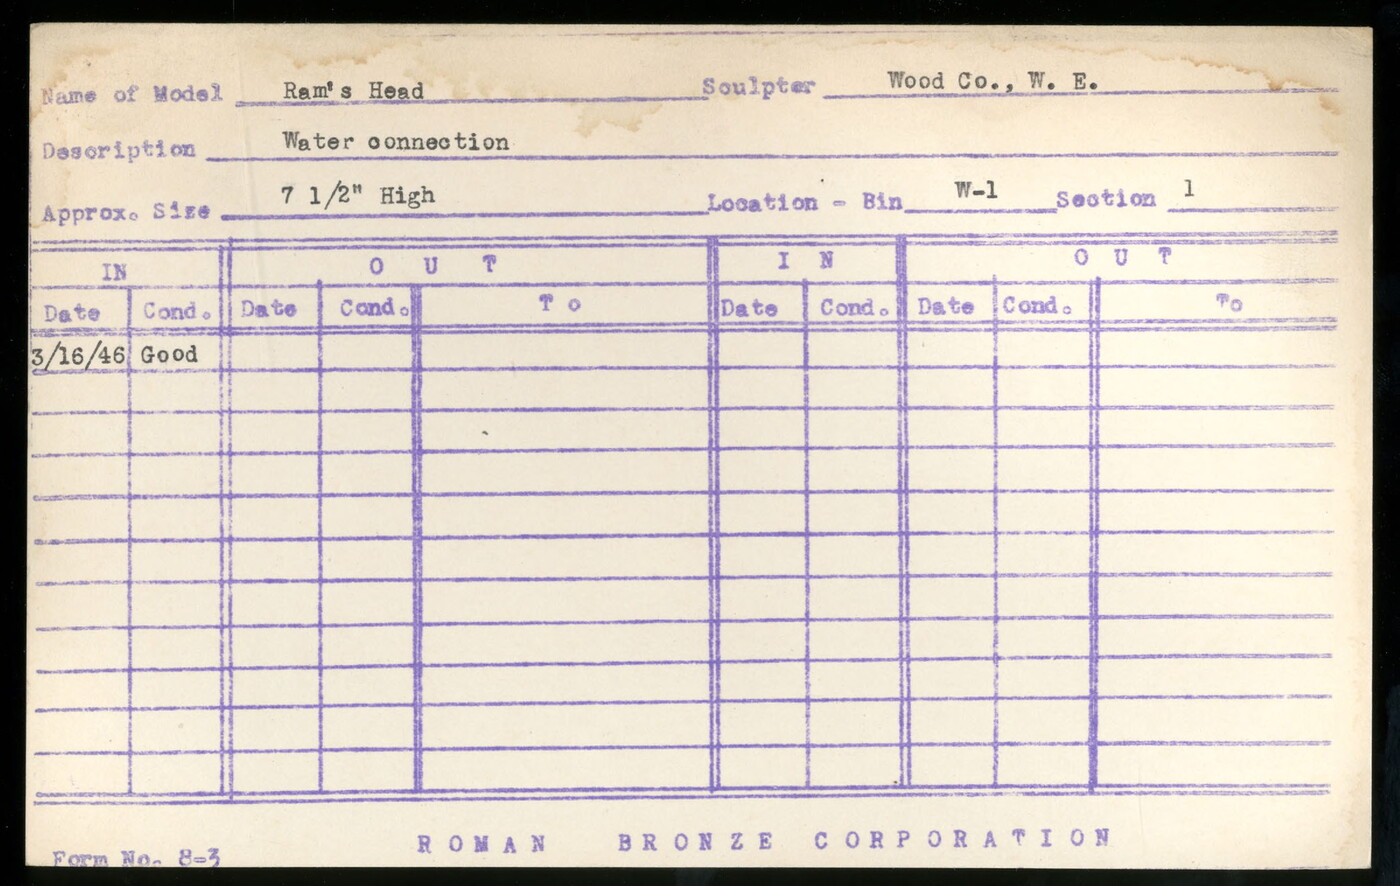 Name of Model Ram's Head Sculpter Wood Co., W. E.
Description Water connection
Approx. Size 7 1/2" High Location - Bin W-1 Section 1
IN OUT IN OUT
Date Cond. Date Cond. To Date Cond. Date Cond. To
3/16/46 Good
ROMAN BRONZE CORPORATION
Form No. 8-3